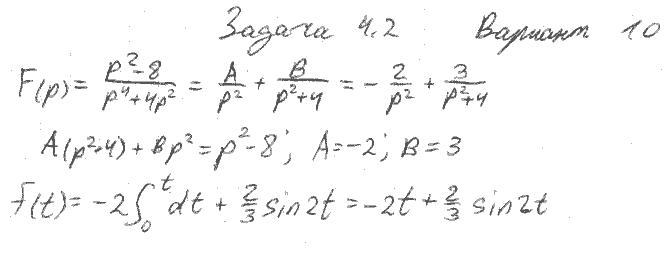 Задача 4.2 Вариант 10
F(p) = \frac{p^2-8}{p^4+4p^2} = \frac{A}{p^2} + \frac{B}{p^2+4} = -\frac{2}{p^2} + \frac{3}{p^2+4}
A(p^2+4) + Bp^2 = p^2-8; A=-2; B=3
f(t) = -2∫_0^t dt + \frac{2}{3} sin2t = -2t + \frac{2}{3} sin2t